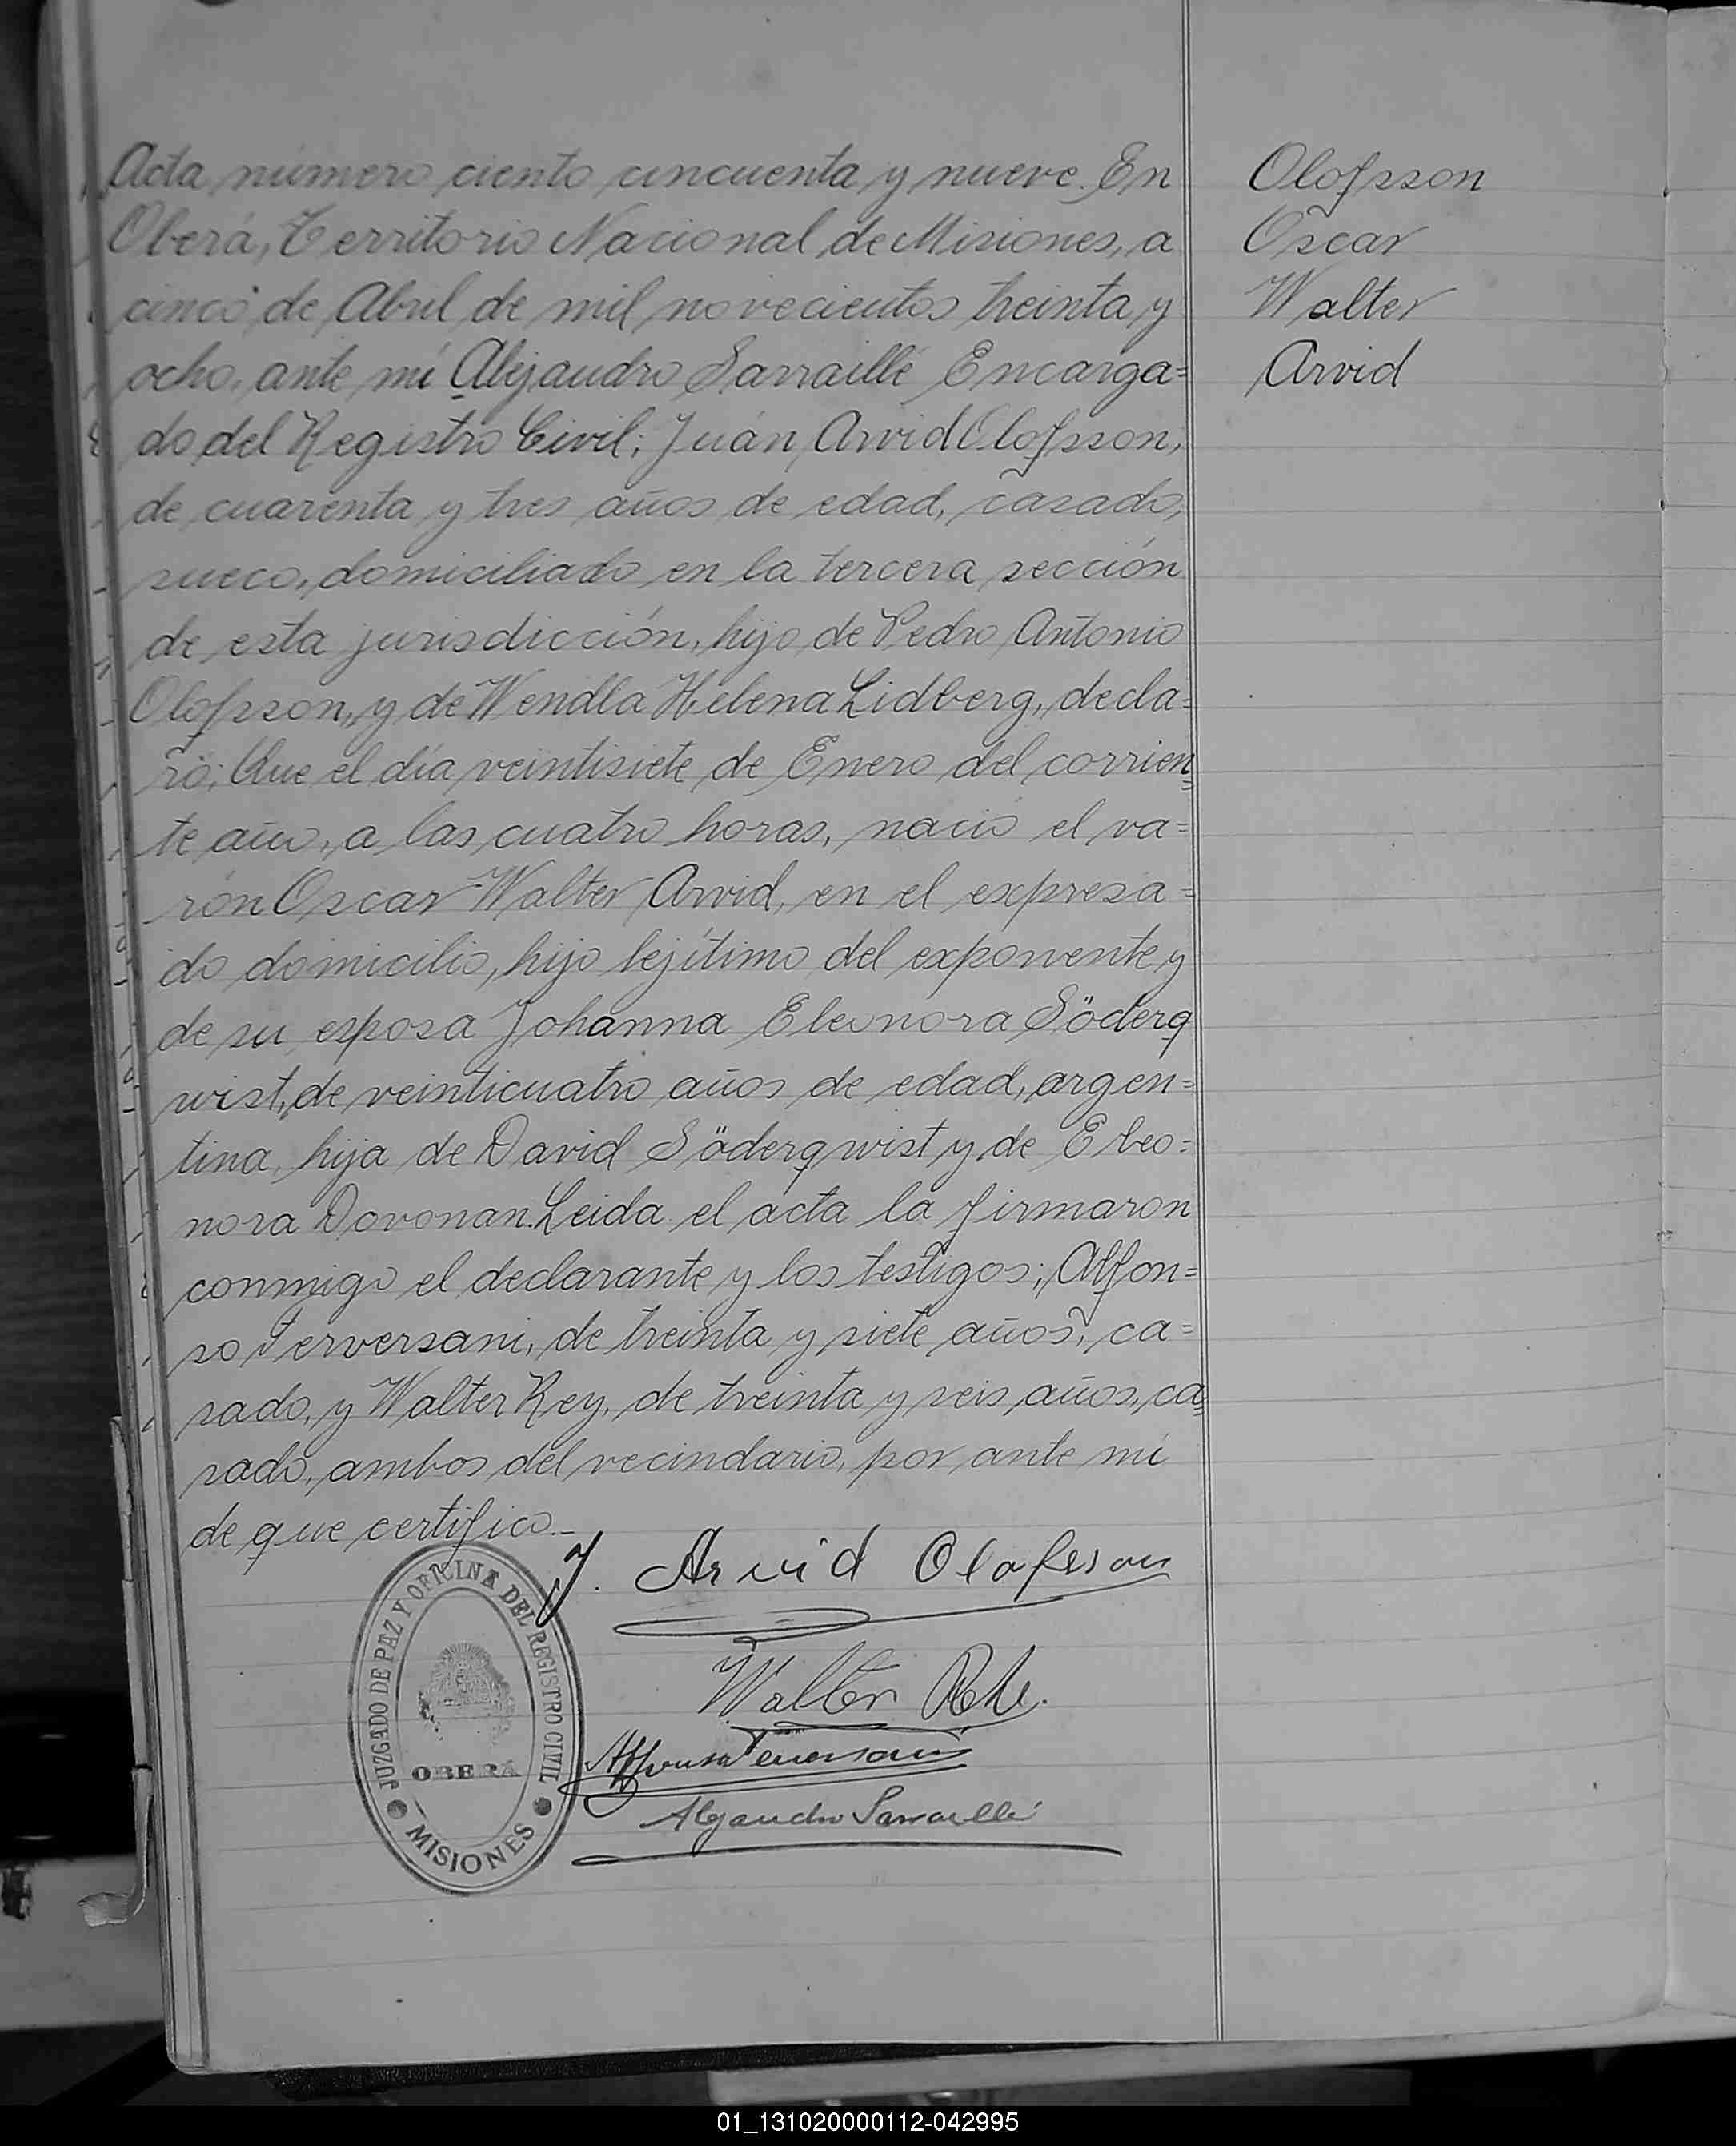 Acta número ciento cincuenta y nueve. En
Oberá, Territorio Nacional de Misiones, a
cinco de Abril de mil novecientos treinta y
ocho, ante mí Alejandro Sarraillé Encarga=
do del Registro Civil; Juán Arvid Olofsson,
de cuarenta y tres años de edad, casado,
sueco, domiciliado en la tercera sección
de esta jurisdicción, hijo de Pedro Antonio
Olofsson, y de Wendla Helena Lidberg, decla=
ró; Que el día veintisiete de Enero del corrien=
te año, a las cuatro horas, nació el va=
rón Oscar Walter Arvid, en el expresa=
do domicilio, hijo lejítimo del exponente y
de su esposa Johanna Eleonora Söderq
wist, de veinticuatro años de edad, argen=
tina, hija de David Söderqwist y de Eleo=
nora Dovonan. Leida el acta la firmaron
conmigo el declarante y los testigos; Alfon=
so Terversani, de treinta y siete años, ca=
sado, y Walter Rey, de treinta y seis años, ca=
sado, ambos del vecindario, por ante mí
de que certifico.-
Olofsson
Oscar
Walter
Arvid
J. Arvid Olofsson
Walter
Alejandro Sarraillé
JUZGADO DE PAZ Y OFICINA DEL REGISTRO CIVIL
OBERÁ
MISIONES
01_131020000112-042995